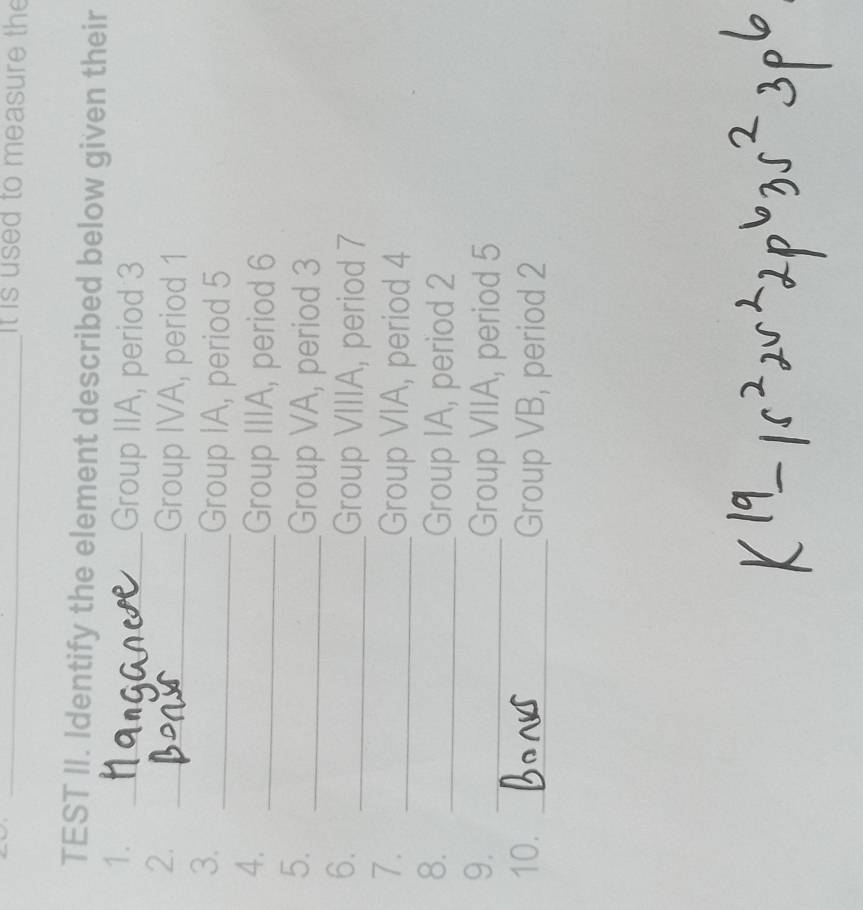 It is used to measure the
TEST II. Identify the element described below given their
1. Manganese Group IIA, period 3
2. Bonus Group IVA, period 1
3. Group IA, period 5
4. Group IIIA, period 6
5. Group VA, period 3
6. Group VIIIA, period 7
7. Group VIA, period 4
8. Group IA, period 2
9. Group VIIA, period 5
10. Bonus Group VB, period 2
K 19 - 1s² 2s² 2p⁶ 3s² 3p⁶